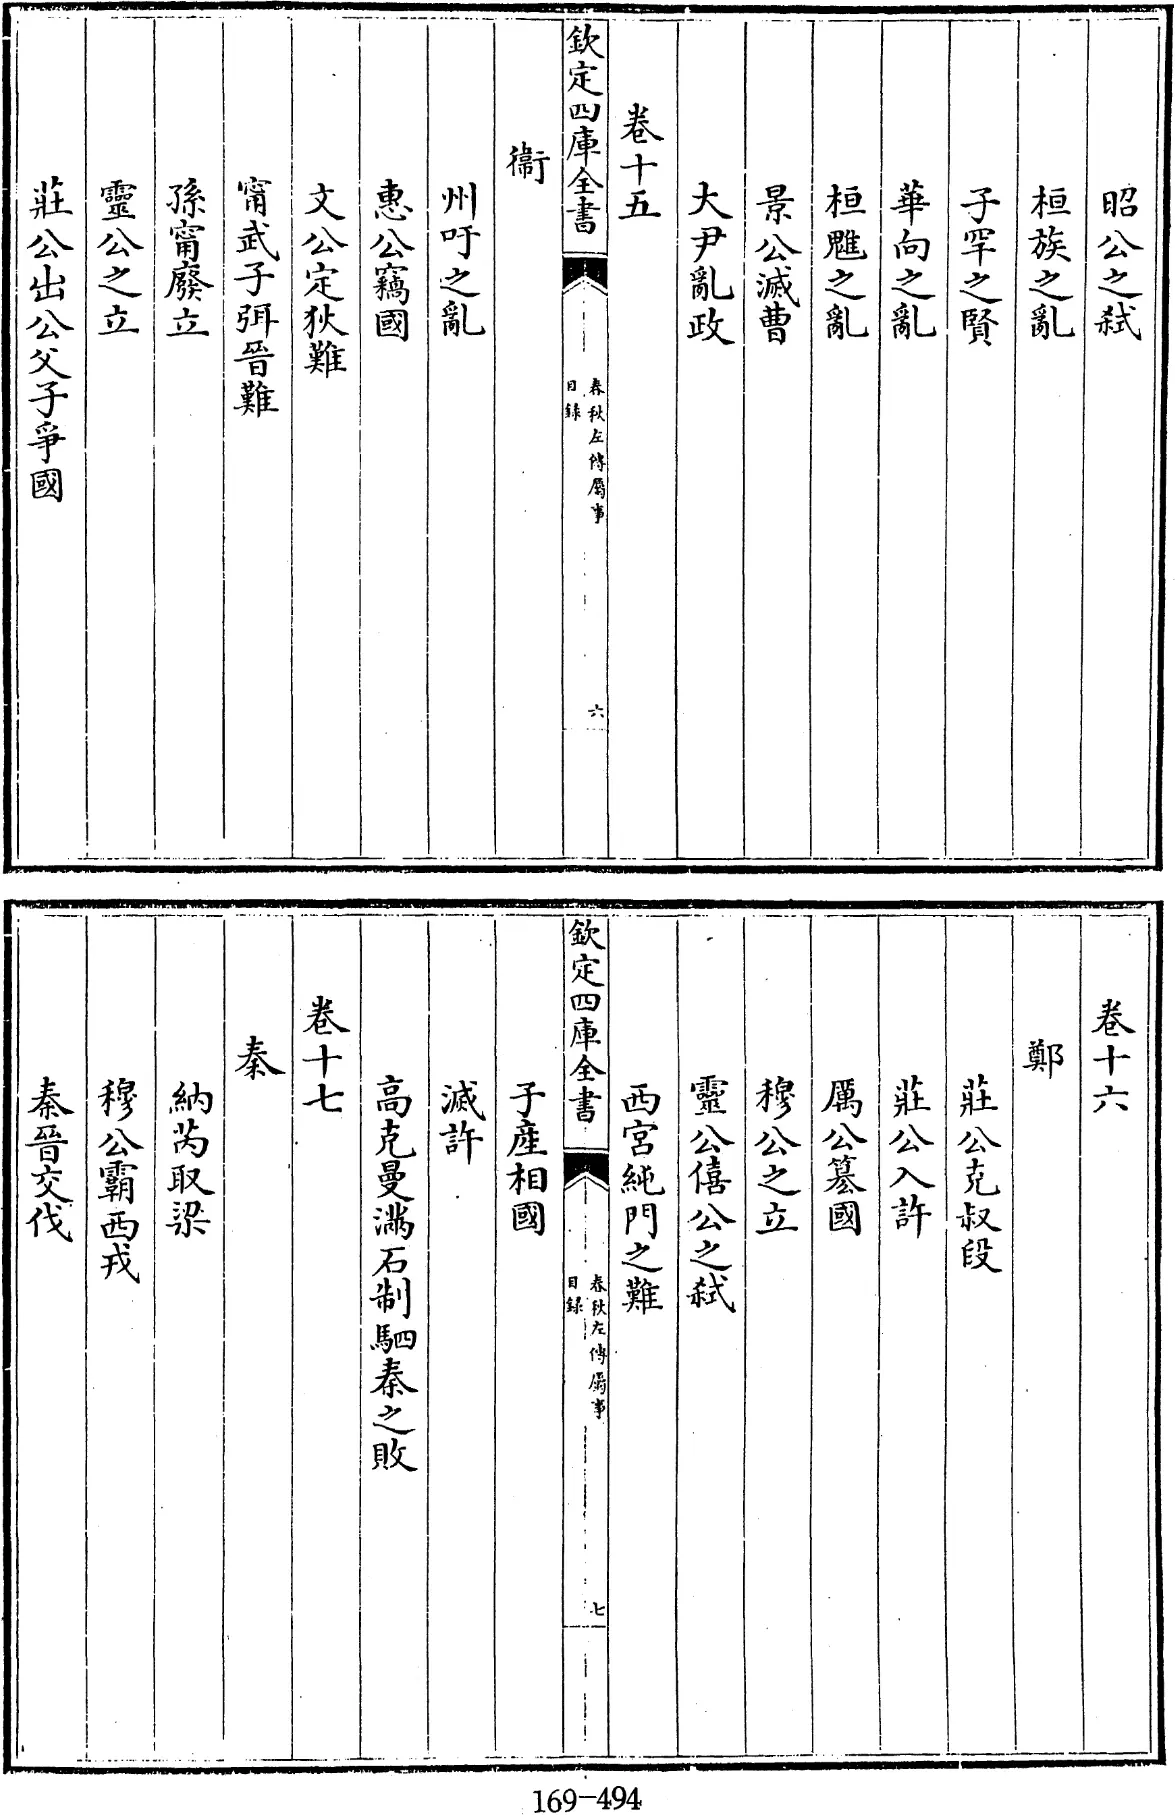 昭公之弑
桓族之亂
子罕之賢
華向之亂
桓魋之亂
景公滅曹
大尹亂政
卷十五
欽定四庫全書
春秋左傳屬事
目錄
六
衞
州吁之亂
惠公竊國
文公定狄難
甯武子弭晉難
孫甯廢立
靈公之立
莊公出公父子爭國
卷十六
鄭
莊公克叔段
莊公入許
厲公篡國
穆公之立
靈公僖公之弑
西宮純門之難
欽定四庫全書
春秋左傳屬事
目錄
七
子産相國
滅許
高克曼滿石制駟秦之敗
卷十七
秦
納芮取梁
穆公霸西戎
秦晉交伐
169-494